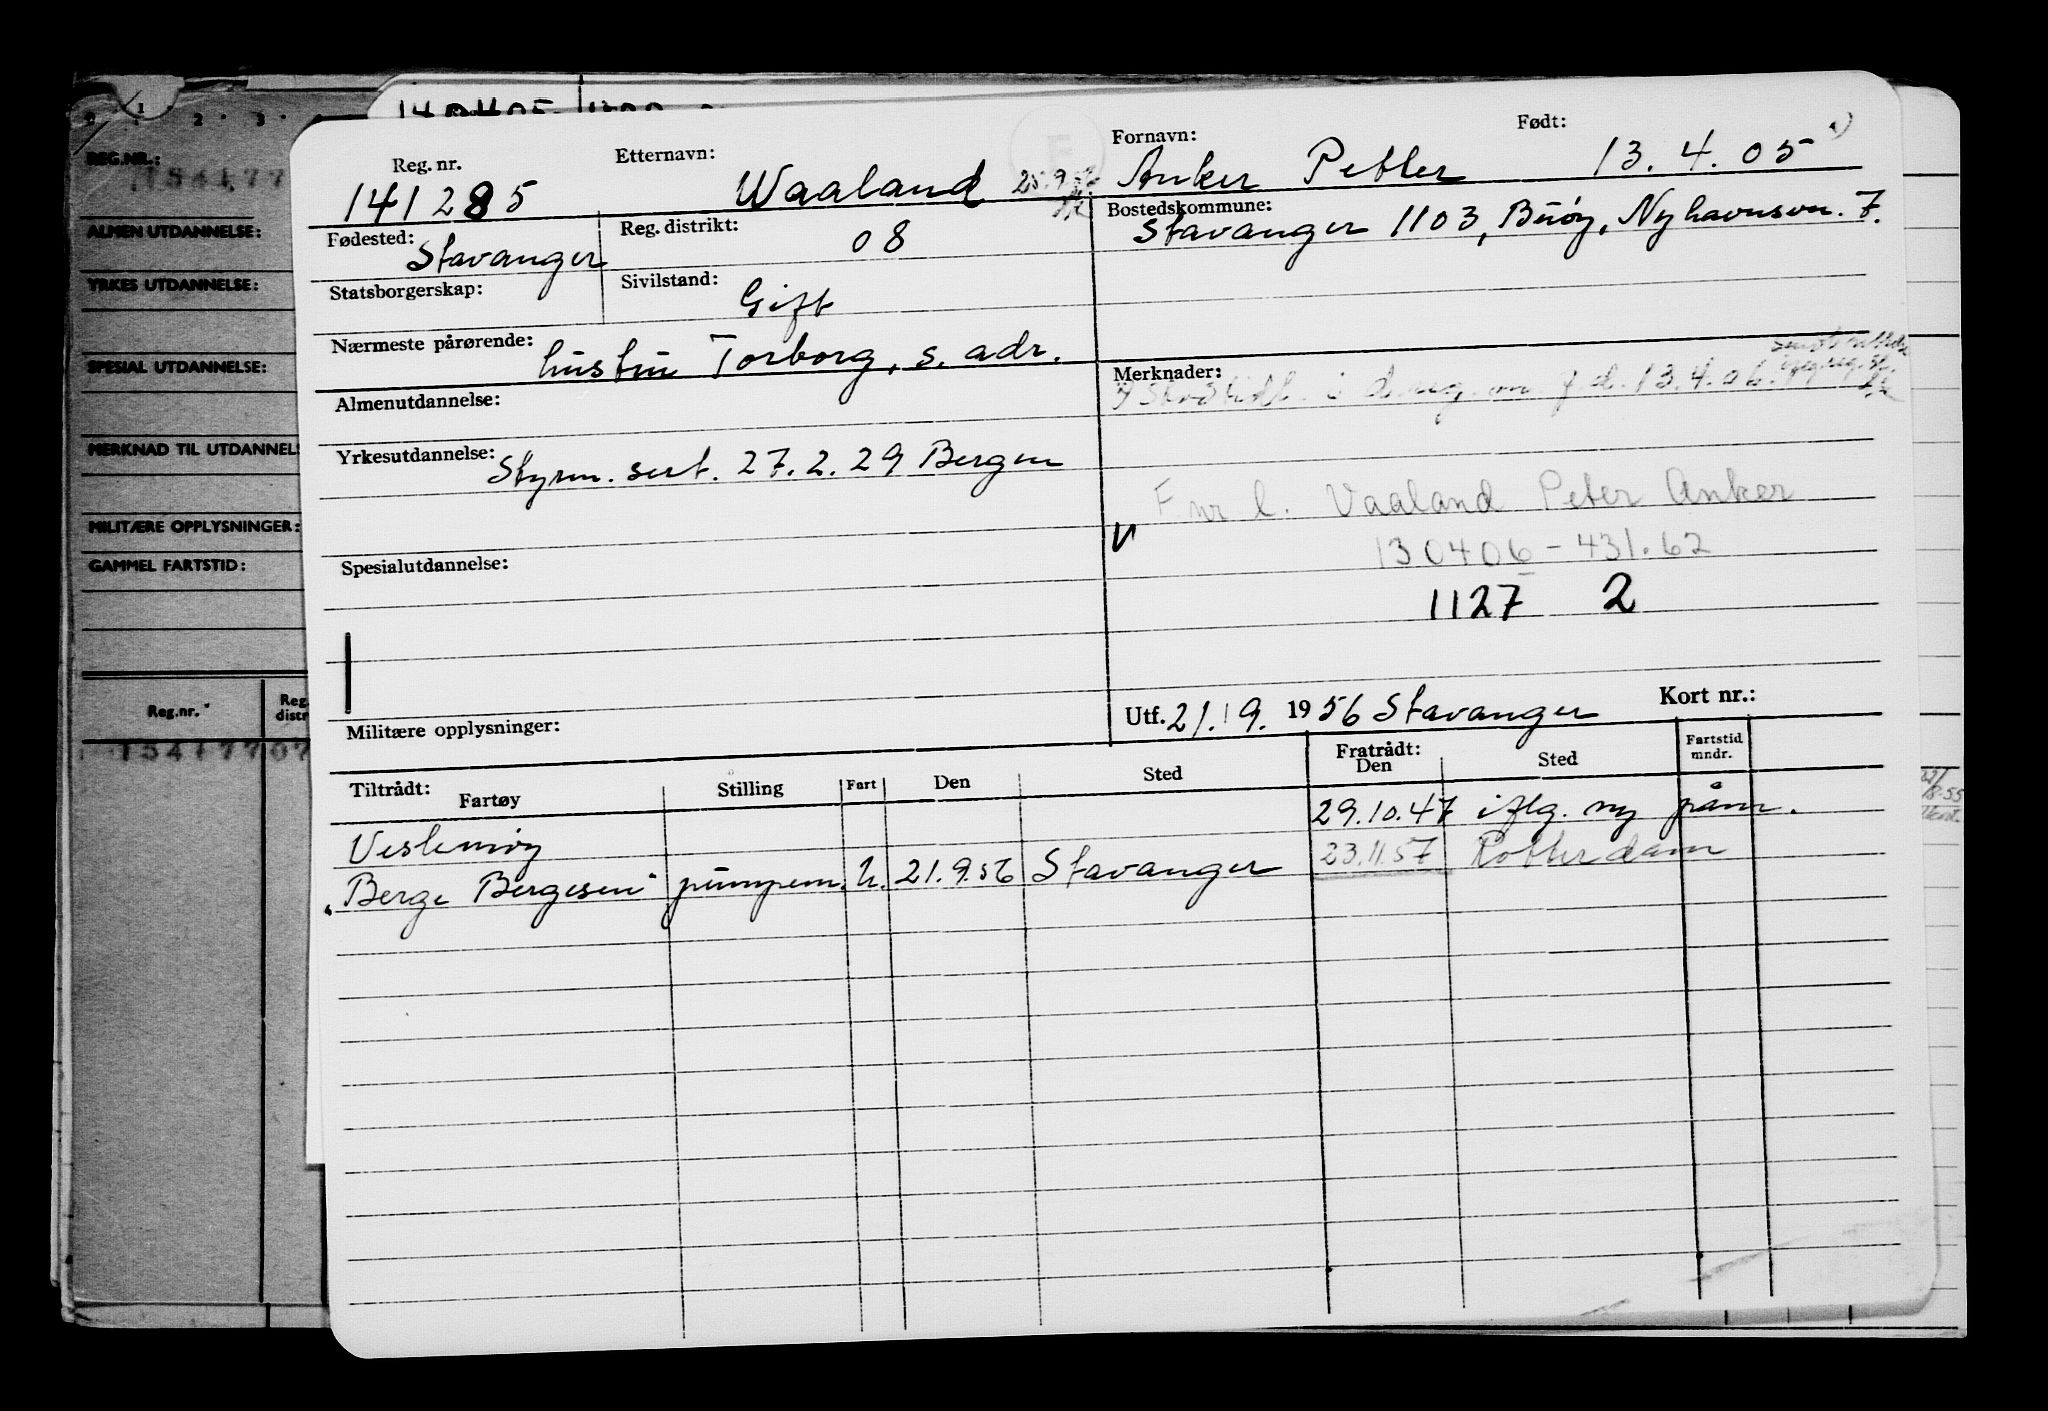 1 2 3
REG.NR.:
154177
ALMEN UTDANNELSE:
YRKES UTDANNELSE:
SPESIAL UTDANNELSE:
MERKNAD TIL UTDANNELS
MILITÆRE OPPLYSNINGER:
GAMMEL FARTSTID:
Reg.nr. Reg. distr
154177 07
Reg. nr. Etternavn: Fornavn: Født:
141285 Waaland 25.9.56 Anker Petter 13.4.05 1)
Fødested: Reg. distrikt: Bostedskommune:
Stavanger 08 Stavanger 1103, Buøy, Nyhavnsvn. 7.
Statsborgerskap: Sivilstand:
Gift
Nærmeste pårørende:
hustru Torborg, s. adr.
Merknader:
f. d. 13.4.06.
Almenutdannelse:
Yrkesutdannelse:
Styrm. sert. 27.2.29 Bergen
F.nr. l. Vaaland Peter Anker
V 130406-431.62
Spesialutdannelse:
1127 2
Militære opplysninger:
Utf. 21. 9. 1956 Stavanger Kort nr.:
Tiltrådt: Fartøy Stilling Fart Den Sted Fratrådt: Den Sted Fartstid mndr.
Veslemøy 29.10.47 iflg. ny påm.
"Berge Bergesen" pumpem. U. 21.9.56 Stavanger 23.11.57 Rotterdam